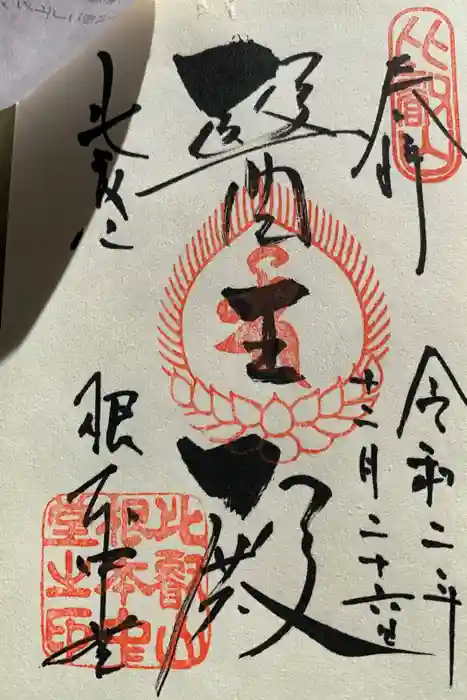 奉拝
比叡山
令和二年
十二月二十六日
醫王殿
比叡山
根本中堂
比叡山
根本中
堂之印